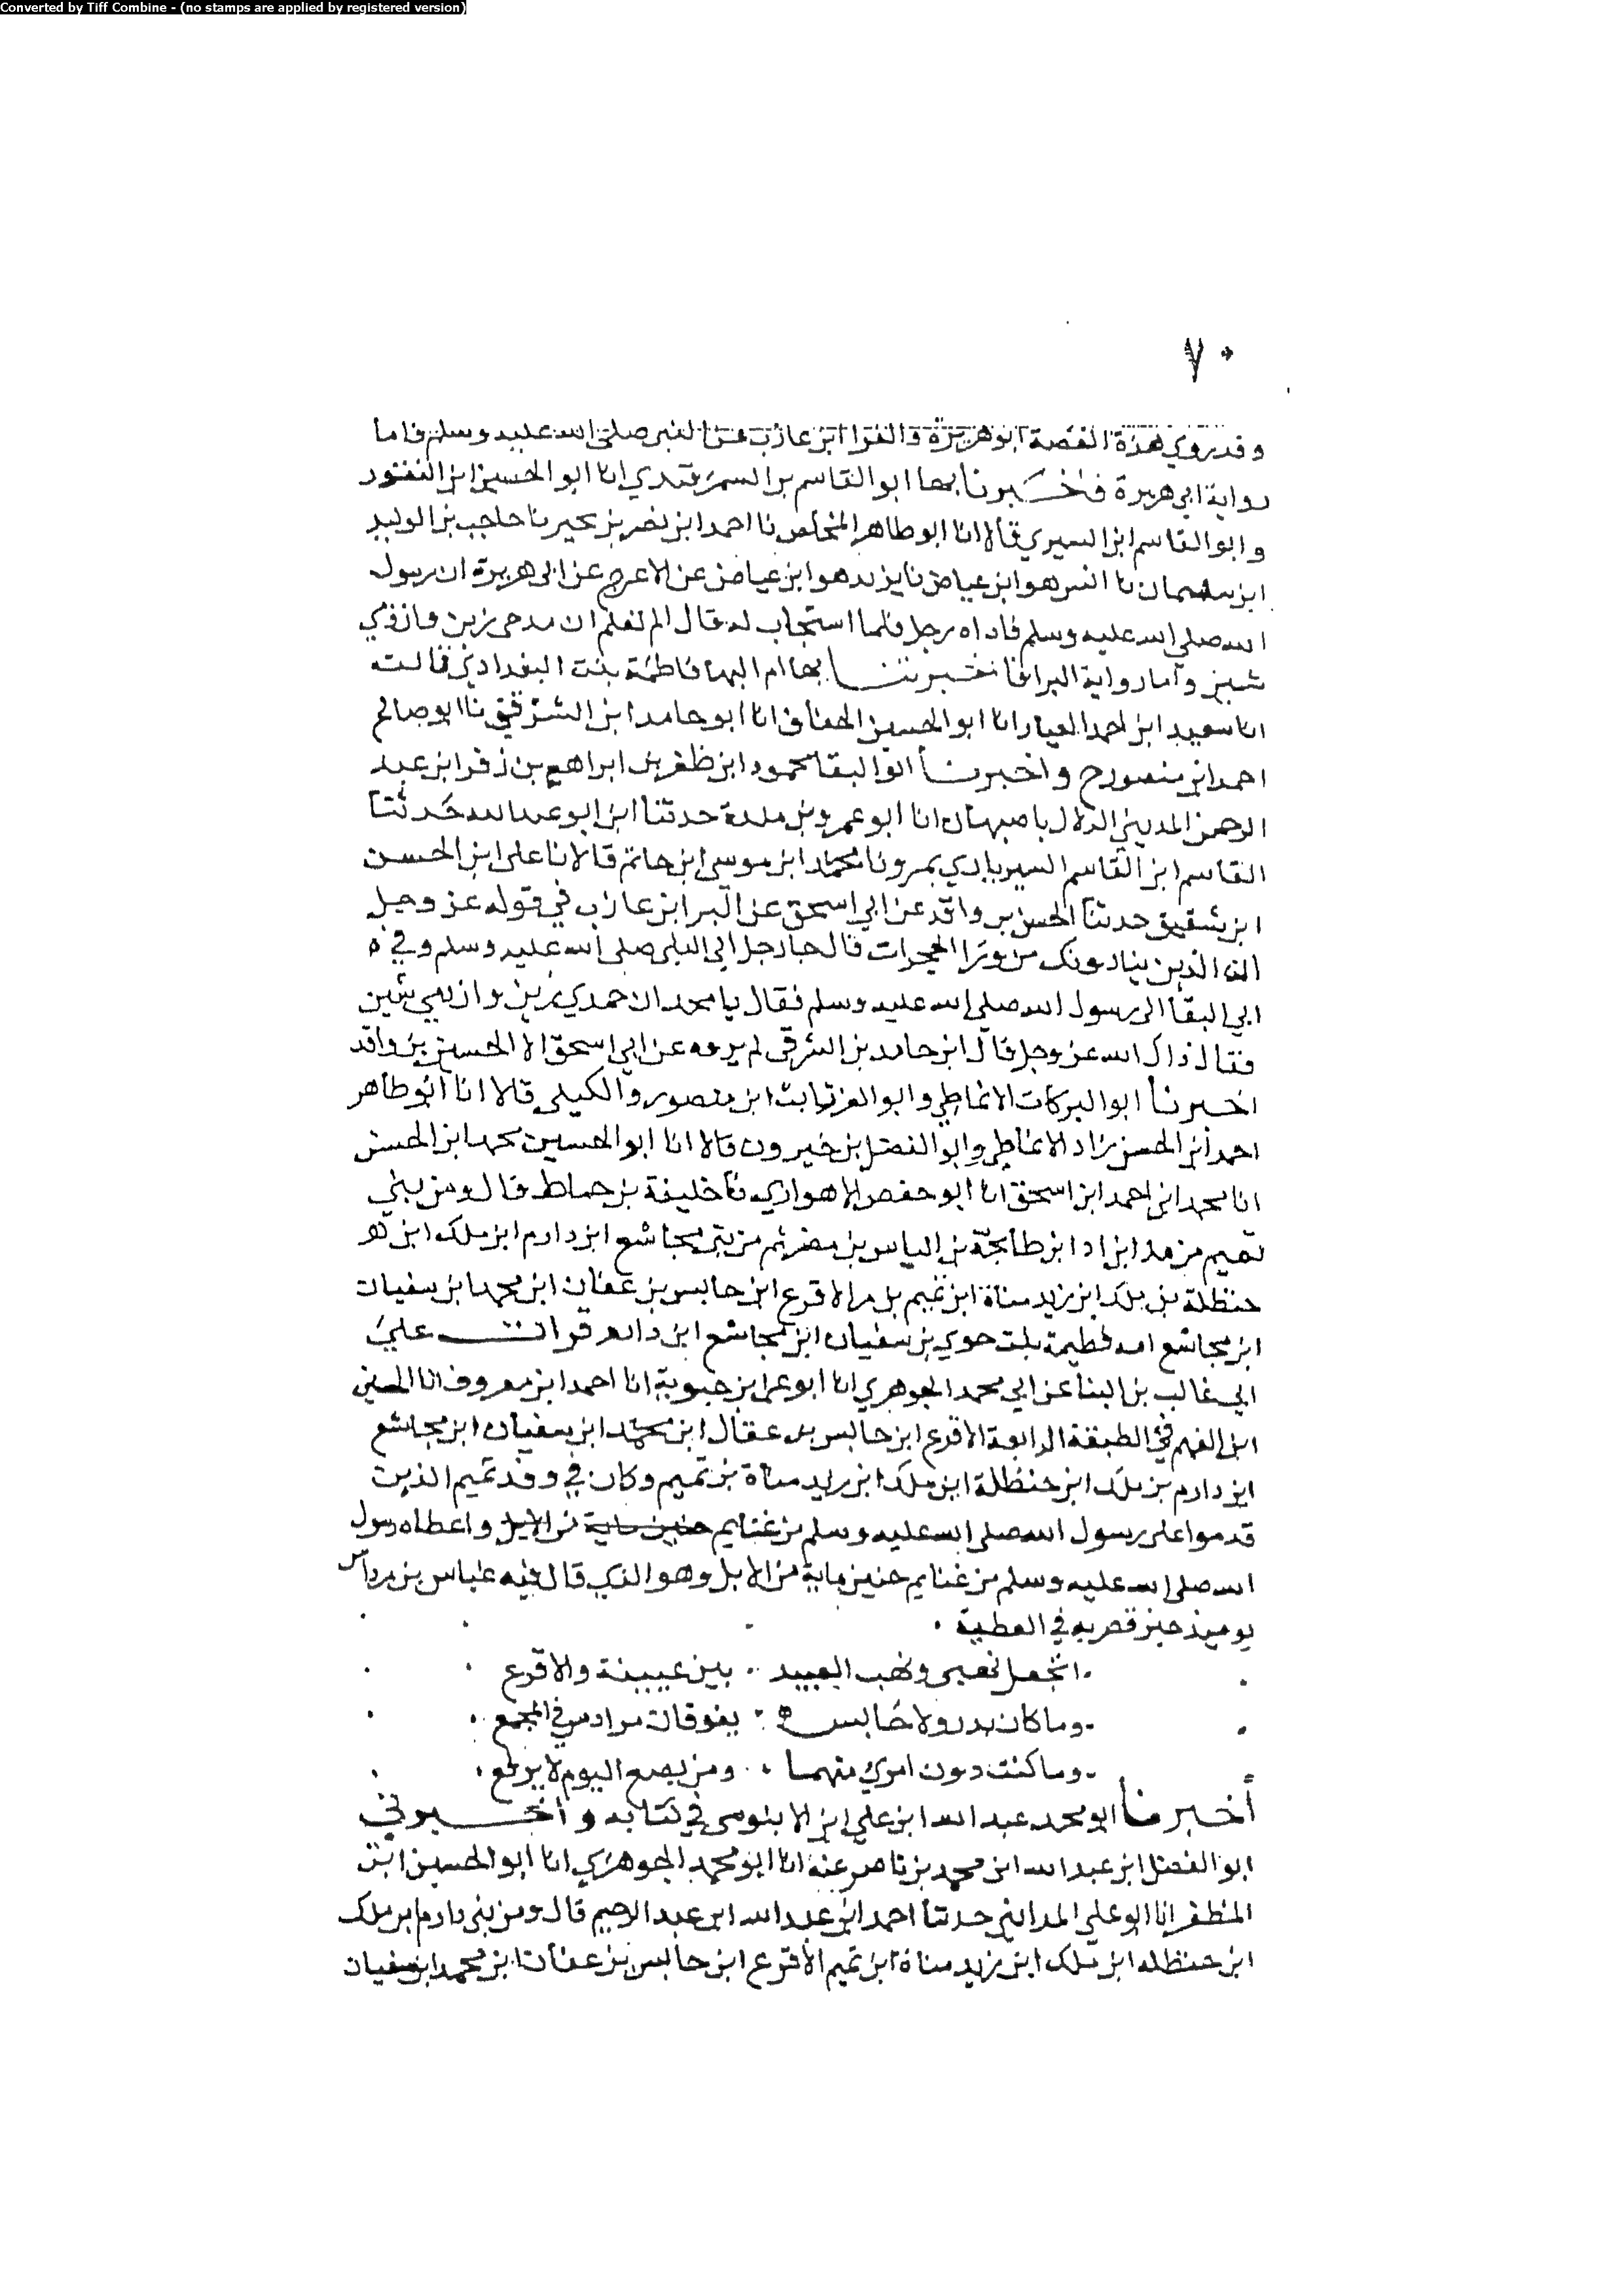 Converted by Tiff Combine - (no stamps are applied by registered version)
٧٠
وقد روي هذه القصة ابو هريرة والبرا ابن عازب عن النبي صلى الله عليه وسلم فاما
رواية ابي هريرة فاخبرنا بها ابو القاسم بن السمرقندي انا ابو الحسين ابن النقور
وابو القاسم ابن البسري قالا انا ابو طاهر المخلص نا احمد ابن نصر بن بحير نا حاجب بن الوليد
ابن سليمان نا انس هو ابن عياض نا يزيد هو ابن عياض عن الاعرج عن ابي هريرة ان رسول
الله صلى الله عليه وسلم ناداه رجل فلما استجاب له قال الم تعلم ان مدحي زين وان ذمي
شين واما رواية البرا فاخبرتنا بها ام البها فاطمة بنت البغدادي قالت
انا سعيد ابن احمد العيار انا ابو الحسين الخفاف انا ابو حامد ابن الشرقي نا ابو صالح
احمد ابن منصور ح واخبرنا ابو البقا محمود ابن ظفر بن ابراهيم بن زفر ابن عبد
الرحمن المديني الدلال باصبهان انا ابو عمرو بن منده حدثنا ابن ابو عبد الله حدثنا
القاسم ابن القاسم السيرياري بمرو نا محمد ابن موسى ابن حاتم قالا نا علي ابن الحسن
ابن شقيق حدثنا الحسن بن واقد عن ابي اسحق عن البرا ابن عازب في قوله عز وجل
ان الذين ينادونك من ورا الحجرات قال جا رجل الى النبي صلى الله عليه وسلم وفي ه
ابي البقا الى رسول الله صلى الله عليه وسلم فقال يا محمد ان حمدي زين وان ذمي شين
فقال ذاك الله عز وجل قال ابن حامد بن الشرقي لم يروه عن ابي اسحق الا الحسين بن واقد
اخبرنا ابو البركات الانماطي وابو العز ثابت ابن منصور والكيلي قالا انا ابو طاهر
احمد ابن الحسن زاد الانماطي وابو الفضل بن خيرون قالا انا ابو الحسين محمد ابن الحسن
انا محمد ابن احمد ابن اسحق انا ابو حفص الاهوازي نا خليفة بن خياط قال ومن بني
تميم من مد ابن اد ابن طابخة بن الياس بن مضر ثم من بني مجاشع ابن دارم ابن ملك ابن
حنظلة بن ملك ابن زيد مناة ابن تميم بل مر الاقرع ابن حابس بن عفان ابن محمد ابن سفيان
ابن مجاشع امه فطيمة بنت حوي بن سفيان ابن مجاشع ابن دارم قرات علي
ابي غالب بن البنا عن ابي محمد الجوهري انا ابو عمر ابن حيوية انا احمد ابن معروف انا الحسين
ابن الفهم في الطبقة الرابعة الاقرع ابن حابس بن عقال ابن محمد ابن سفيان ابن مجاشع
ابن دارم بن ملك ابن حنظلة ابن ملك ابن زيد مناة بن تميم وكان في وفد تميم الذين
قدموا على رسول الله صلى الله عليه وسلم من غنايم حنين ماية من الابل واعطاه رسول
الله صلى الله عليه وسلم من غنايم حنين ماية من الابل وهو الذي قال فيه عباس بن مرداس
يوميذ حين قصر به في العطية
اتجعل نهبي ونهب العبيد بين عيينة والاقرع
وما كان بدر ولا حابس يفوقان مرادس في المجمع
وما كنت دون امري منهما ومن يضع اليوم لا يرفع
أخبرنا ابو محمد عبد الله ابن علي ابن الابنوسي في كتابه واخبرني
ابو الفضل ابن عبد الله ابن محمد بن ناصر عنه انا ابو محمد الجوهري انا ابو الحسين ابن
المظفر انا ابو علي المدايني حدثنا احمد ابن عبد الله ابن عبد الرحيم قال ومن بني دارم ابن ملك
ابن حنظله ابن ملك ابن زيد مناة ابن تميم الاقرع ابن حابس بن عفان ابن محمد ابن سفيان